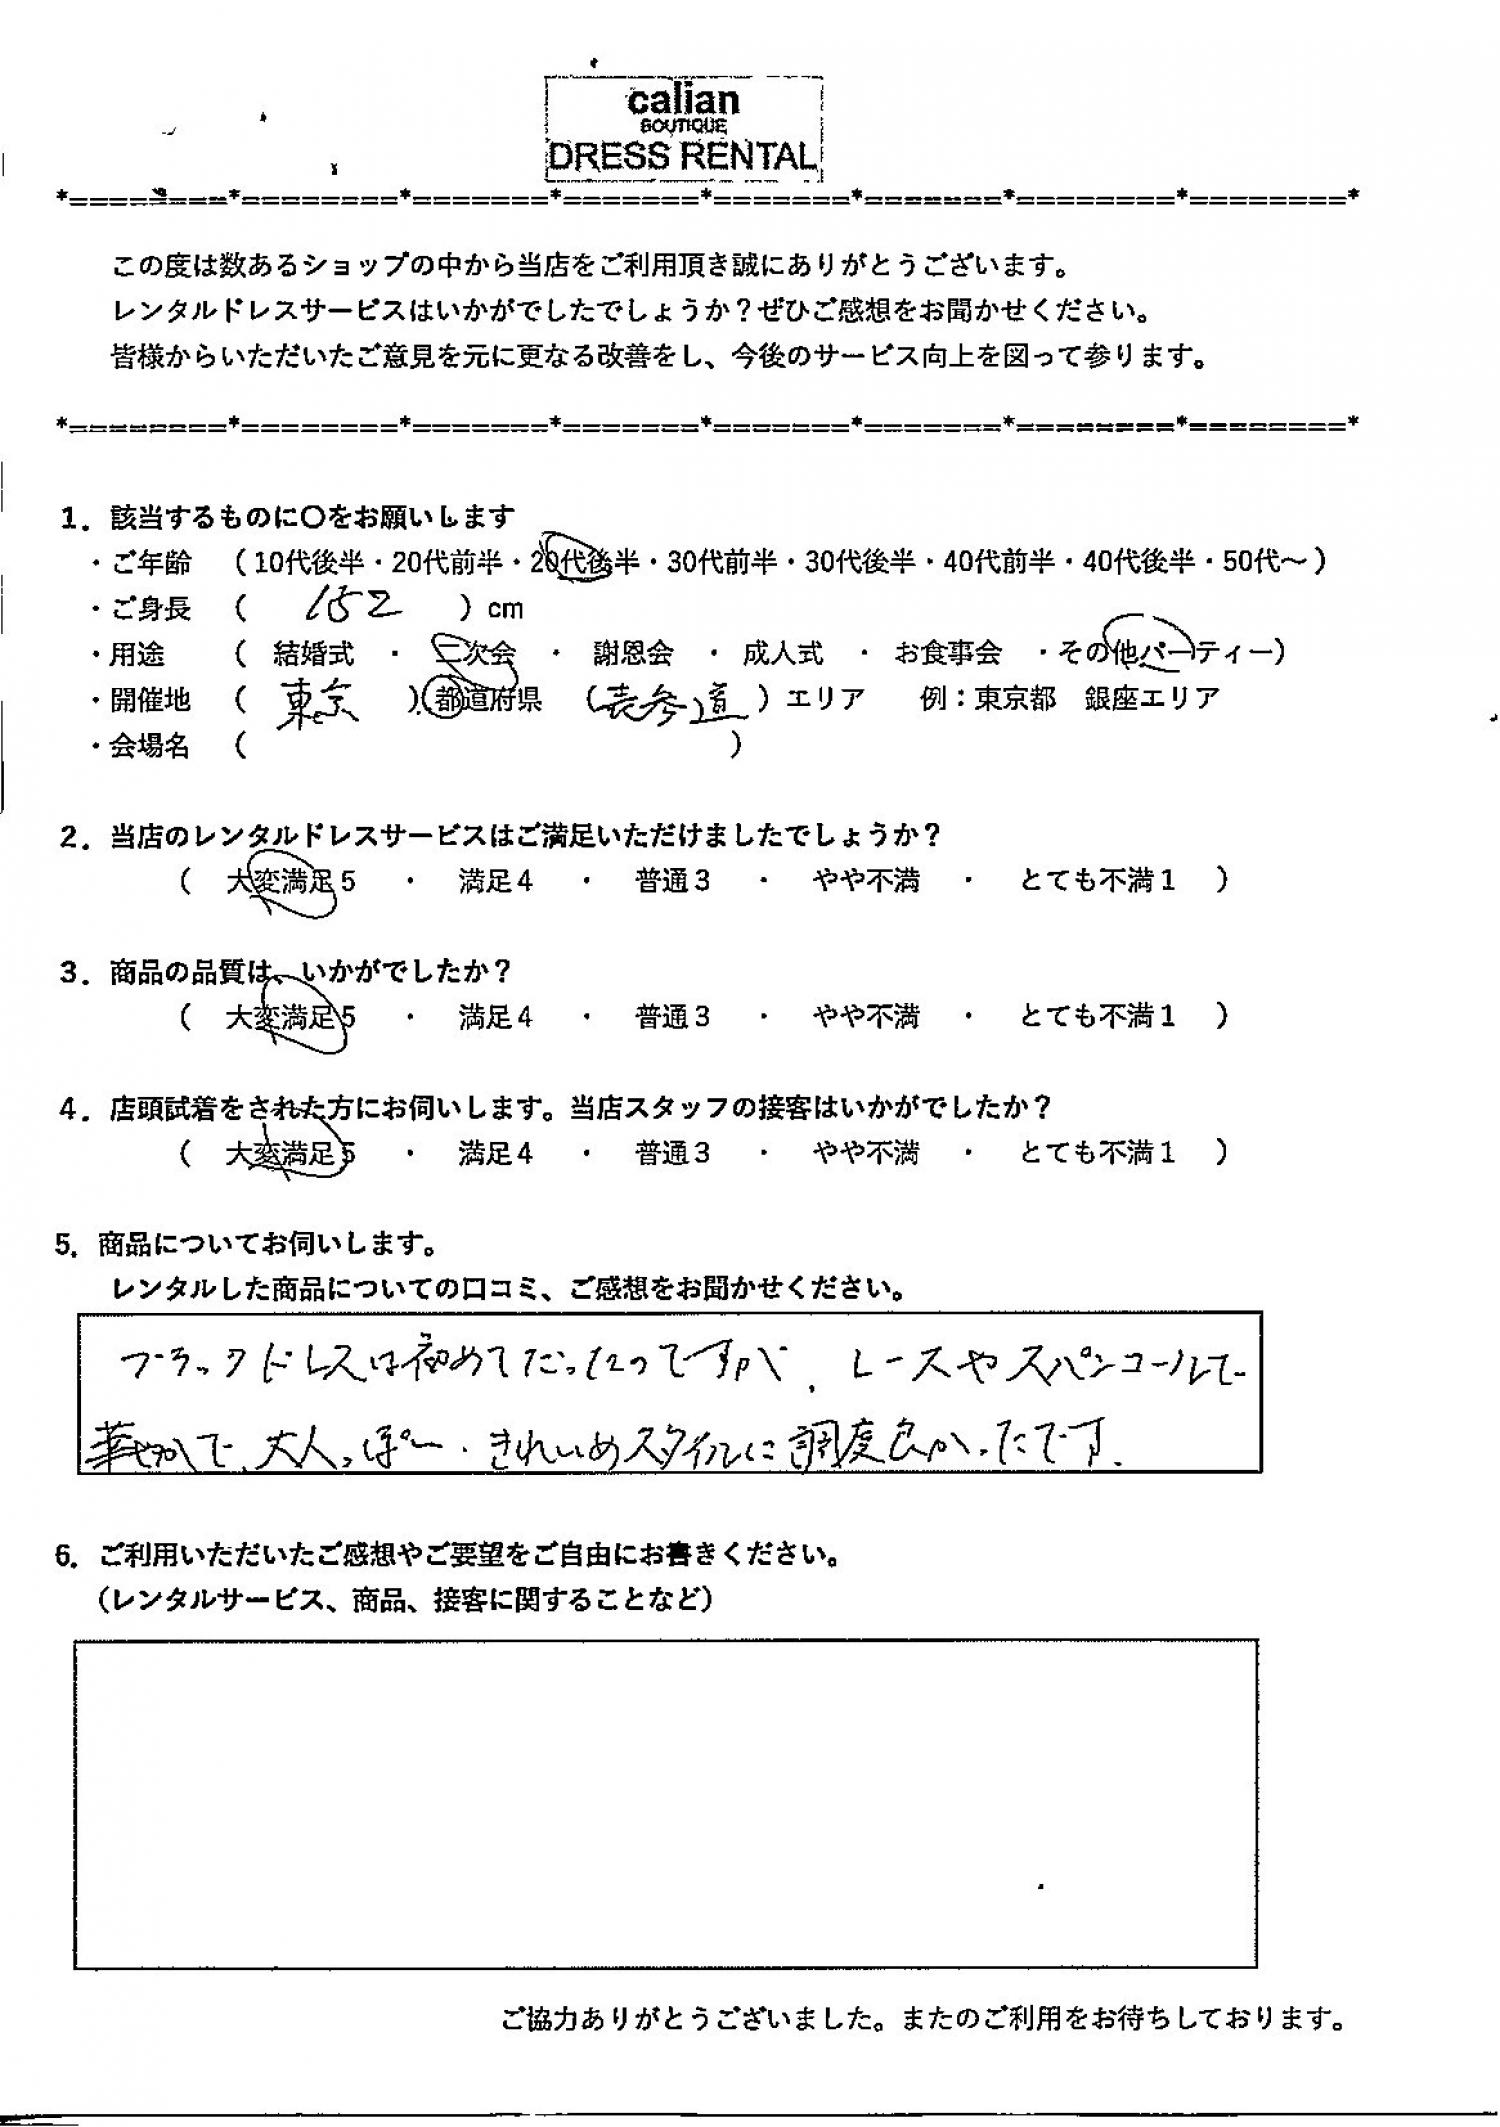 calian
BOUTIQUE
DRESS RENTAL
*========*========*=======*=======*=======*=======*========*========*
この度は数あるショップの中から当店をご利用頂き誠にありがとうございます。
レンタルドレスサービスはいかがでしたでしょうか？ぜひご感想をお聞かせください。
皆様からいただいたご意見を元に更なる改善をし、今後のサービス向上を図って参ります。
*========*========*=======*=======*=======*=======*========*========*
1．該当するものに〇をお願いします
・ご年齢 （10代後半・20代前半・20代後半・30代前半・30代後半・40代前半・40代後半・50代～）
・ご身長 （ 152 ）cm
・用途 （ 結婚式 ・ 二次会 ・ 謝恩会 ・ 成人式 ・ お食事会 ・その他パーティー）
・開催地 （ 東京 ）都道府県 （表参道）エリア 例：東京都 銀座エリア
・会場名 （ ）
2．当店のレンタルドレスサービスはご満足いただけましたでしょうか？
（ 大変満足5 ・ 満足4 ・ 普通3 ・ やや不満 ・ とても不満1 ）
3．商品の品質は、いかがでしたか？
（ 大変満足5 ・ 満足4 ・ 普通3 ・ やや不満 ・ とても不満1 ）
4．店頭試着をされた方にお伺いします。当店スタッフの接客はいかがでしたか？
（ 大変満足5 ・ 満足4 ・ 普通3 ・ やや不満 ・ とても不満1 ）
5．商品についてお伺いします。
レンタルした商品についての口コミ、ご感想をお聞かせください。
ブラックドレスは初めてだったのですが、レースやスパンコールで
華やかで、大人っぽい・きれいめスタイルに調度良かったです。
6．ご利用いただいたご感想やご要望をご自由にお書きください。
（レンタルサービス、商品、接客に関することなど）
ご協力ありがとうございました。またのご利用をお待ちしております。